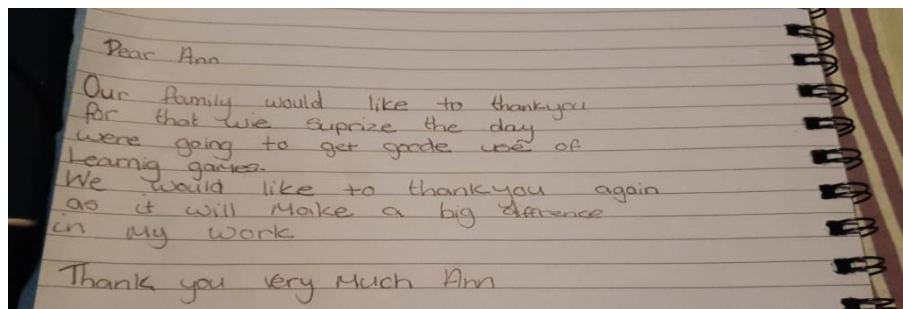 Dear Ann
Our family would like to thankyou
for that wie suprize the day
were going to get goode use of
Learnig games.
We would like to thankyou again
as it will make a big dfference
in my work
Thank you very much Ann